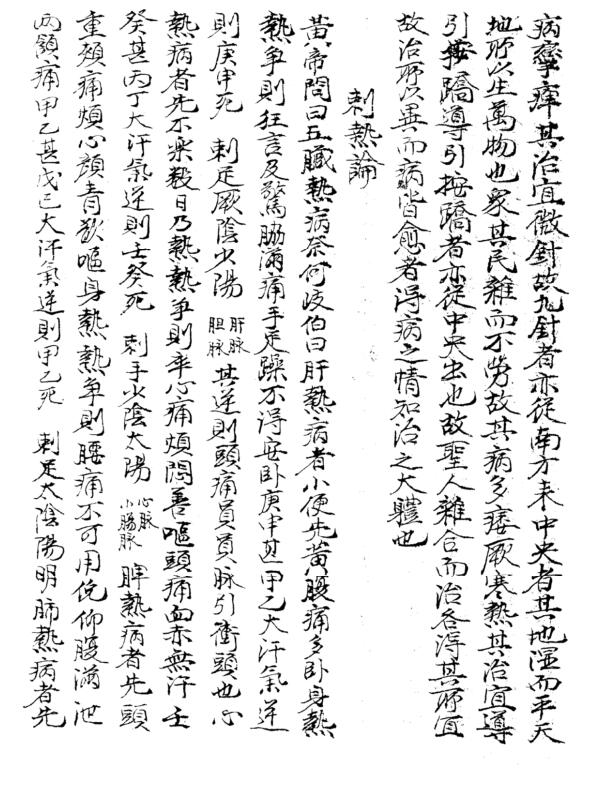 病攣痺其治宜微針故九針者亦從南方来中央者其地湿而平天
地所以生萬物也衆其民雜而不勞故其病多痿厥寒熱其治宜導
引按蹻導引按蹻者亦從中央出也故聖人雜合而治各得其所宜
故治所以異而病皆愈者得病之情知治之大體也
刺熱論
黄帝問曰五臓熱病奈何岐伯曰肝熱病者小便先黄腹痛多卧身熱
熱争則狂言及驚脇滿痛手足躁不得安卧庚申甚甲乙大汗氣逆
則庚申死 刺足厥陰少陽 肝脉 胆脉 其逆則頭痛員員脉引衝頭也心
熱病者先不楽數日乃熱熱争則卒心痛煩悶善嘔頭痛面赤無汗壬
癸甚丙丁大汗氣逆則壬癸死 刺手少陰太陽 心脉 小腸脉 脾熱病者先頭
重頬痛煩心顔青欲嘔身熱熱争則腰痛不可用俛仰腹滿泄
两頷痛甲乙甚戊己大汗氣逆則甲乙死 刺足太陰陽明肺熱病者先